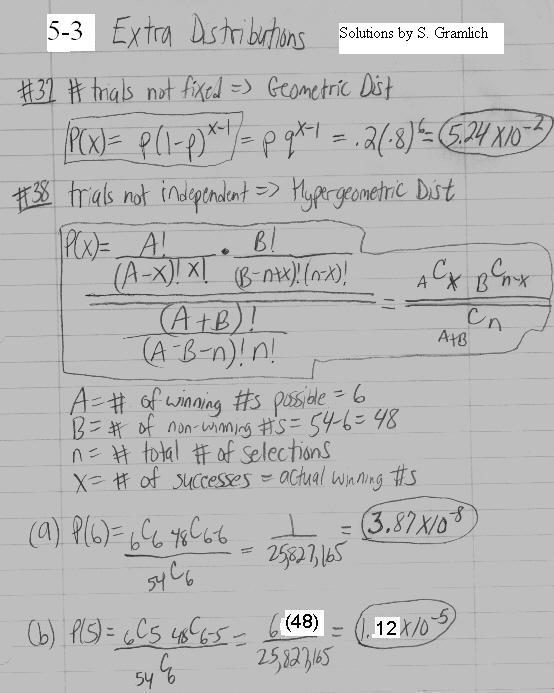 5-3 Extra Distributions Solutions by S. Gramlich
#37 # trials not fixed => Geometric Dist
P(x) = p(1-p)^x-1 = p q^x-1 = .2(.8)^6 = 5.24 x10^-2
#38 trials not independent => Hypergeometric Dist
P(x) = A! / (A-x)! x! · B! / (B-n+x)! (n-x)! / (A+B)! / (A-B-n)! n! = A C x B C n-x / A+B C n
A = # of winning #s possible = 6
B = # of non-winning #s = 54-6 = 48
n = # total # of selections
x = # of successes = actual winning #s
(a) P(6) = 6C6 48C6-6 / 54C6 = 1 / 25,827,165 = 3.87 x10^-8
(b) P(5) = 6C5 48C6-5 / 54C6 = 6 (48) / 25,827,165 = 1.12 x10^-5